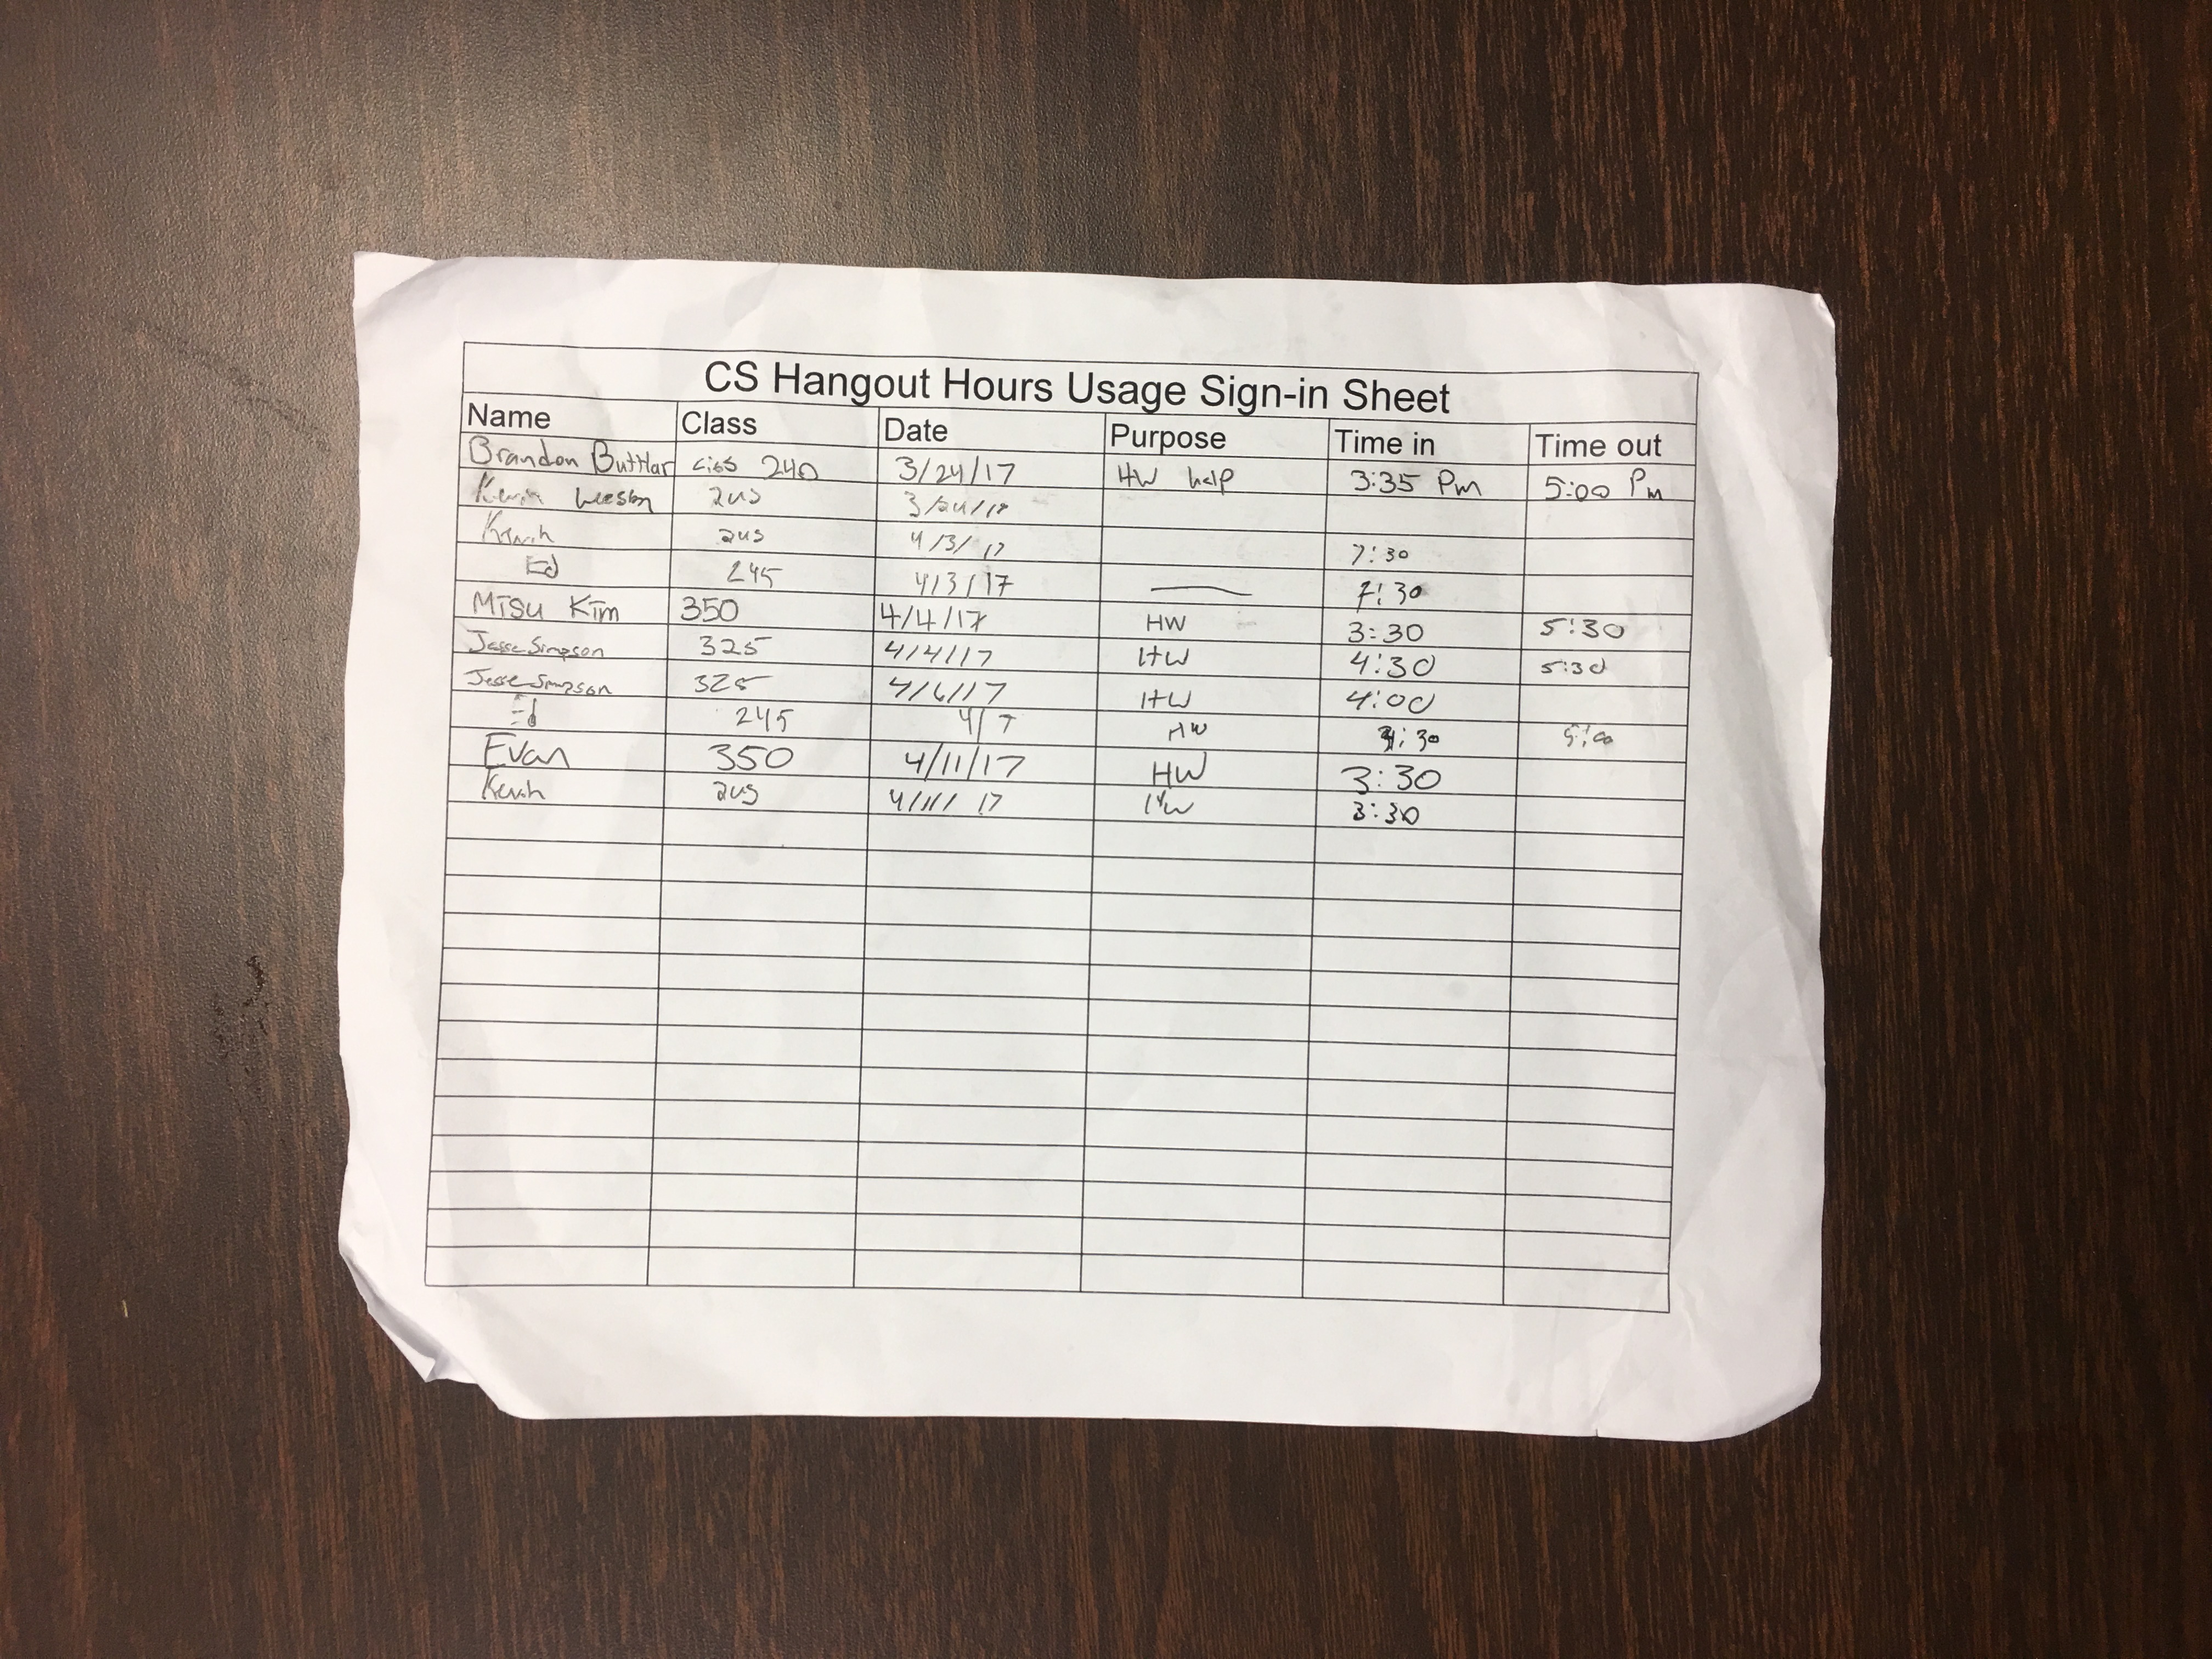 CS Hangout Hours Usage Sign-in Sheet
Name Class Date Purpose Time in Time out
Brandon Buttlar ciss 240 3/24/17 HW help 3:35 Pm 5:00 Pm
Kevin
Kevin 245 4/3/17 7:30
Ed 245 4/3/17 — 7:30
MTSU KIM 350 4/4/17 HW 3:30 5:30
Jesse Simpson 325 4/4/17 HW 4:30 5:30
Jesse Simpson 325 4/6/17 HW 4:00
Ed 245 4/7 HW :30 5:00
Evan 350 4/11/17 HW 3:30
Kevin 245 4/11/17 HW 3:30